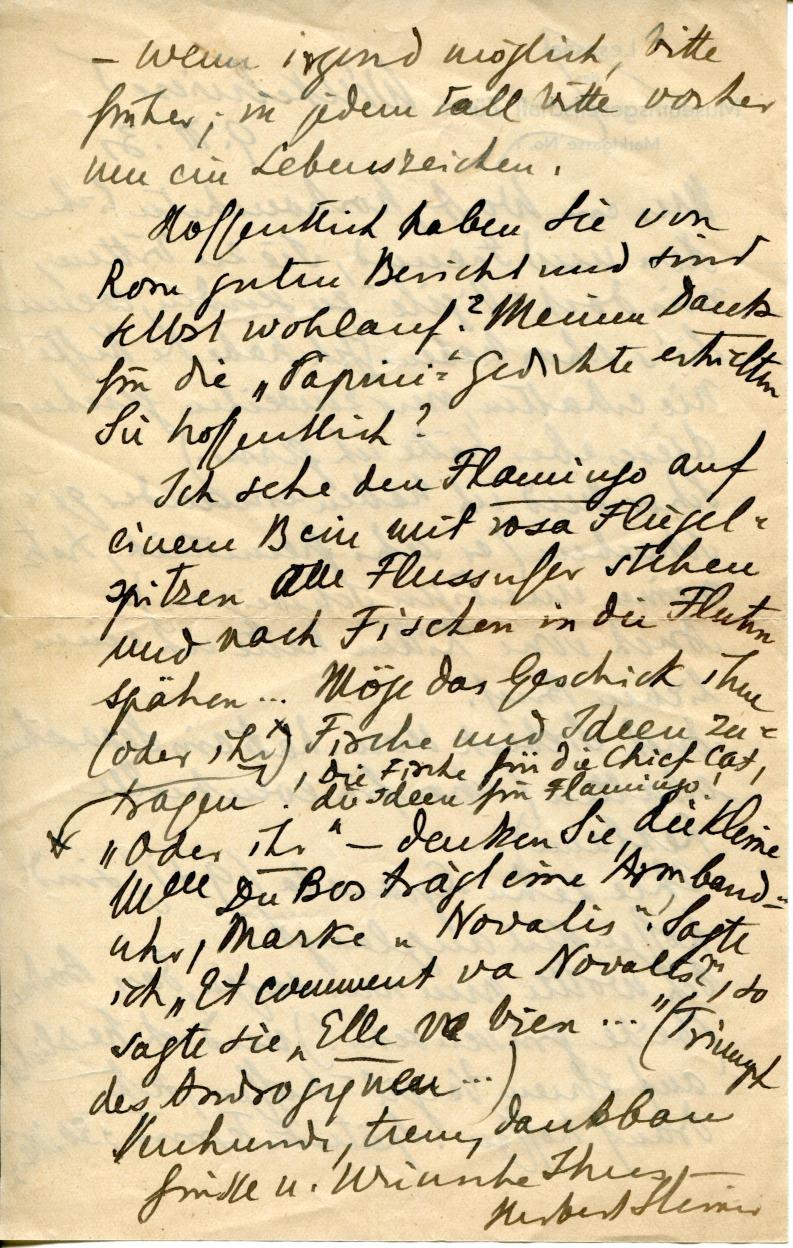 – wenn irgend möglich, bitte
früher; in jedem Fall bitte vorher
nur ein Lebenszeichen.
Hoffentlich haben Sie von
Rom guten Bericht und sind
selbst wohlauf? Meinen Dank
für die „Papini“-Gedichte erhielten
Sie hoffentlich?
Ich sehe den Flamingo auf
einem Bein mit rosa Flügel-
spitzen am Flussufer stehen
und nach Fischen in die Fluten
spähen... Möge das Geschick ihm
(oder ihr) Fische und Ideen zu-
tragen! die Fische für die Chief Cat,
die Ideen für Flamingo!
„Oder ihr“ – denken Sie, die kleine
Mlle Du Bos trägt eine Armband-
uhr, Marke „Novalis“! Sagte
ich „Et comment va Novalis?“, so
sagte sie „Elle va bien...“ (Triumph
des Androgynen...)
treu, dankbar
Grüße u. Wünsche Ihres
Herbert Steiner